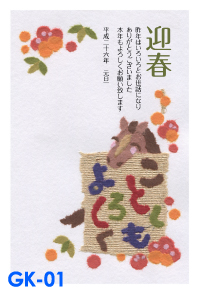 迎春
昨年はいろいろとお世話になり
ありがとうございました
本年もよろしくお願い致します
平成二十六年 元旦
ことしも
よろしく
GK-01